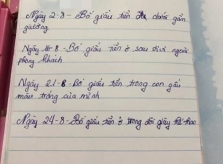 Ngày 2-8 - Bố giấu tiền ở chân gần
giường
Ngày 16-8 - Bố giấu tiền ở sau tivi ngoài
phòng khách
Ngày 21-8 - Bố giấu tiền trong con gấu
màu trắng của mình
Ngày 24-8 - Bố giấu tiền ở trong đôi giày thể thao